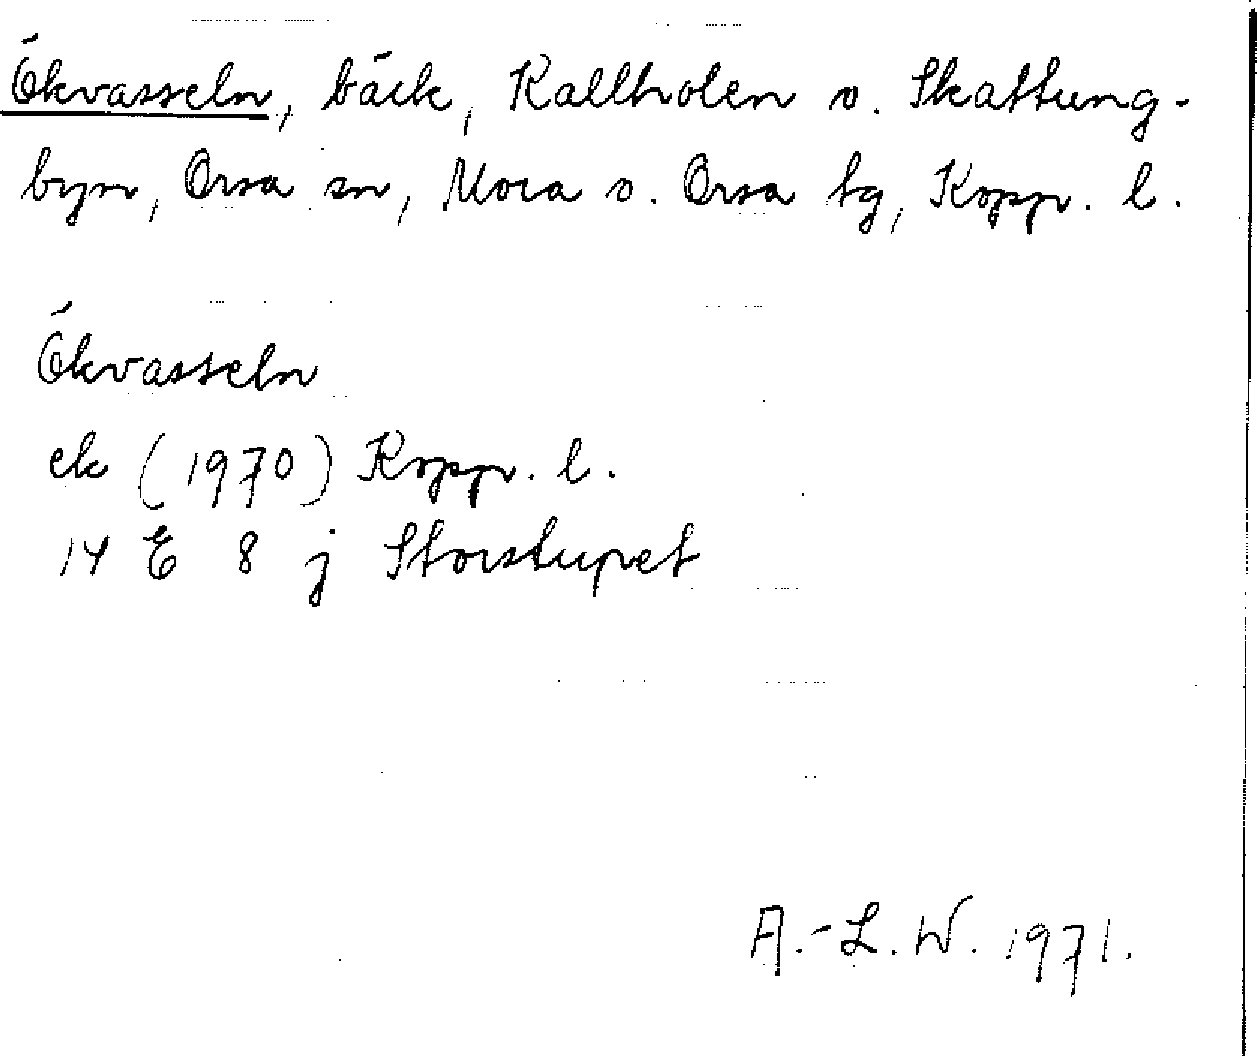 Ökvasseln, bäck, Kallholen o. Skattung-
byn, Orsa sn, Mora o. Orsa tg, Kopp. l.
Ökvasseln
ek (1970) Kopp. l.
14 E 8 j Storstupet
A.-L. W. 1971.